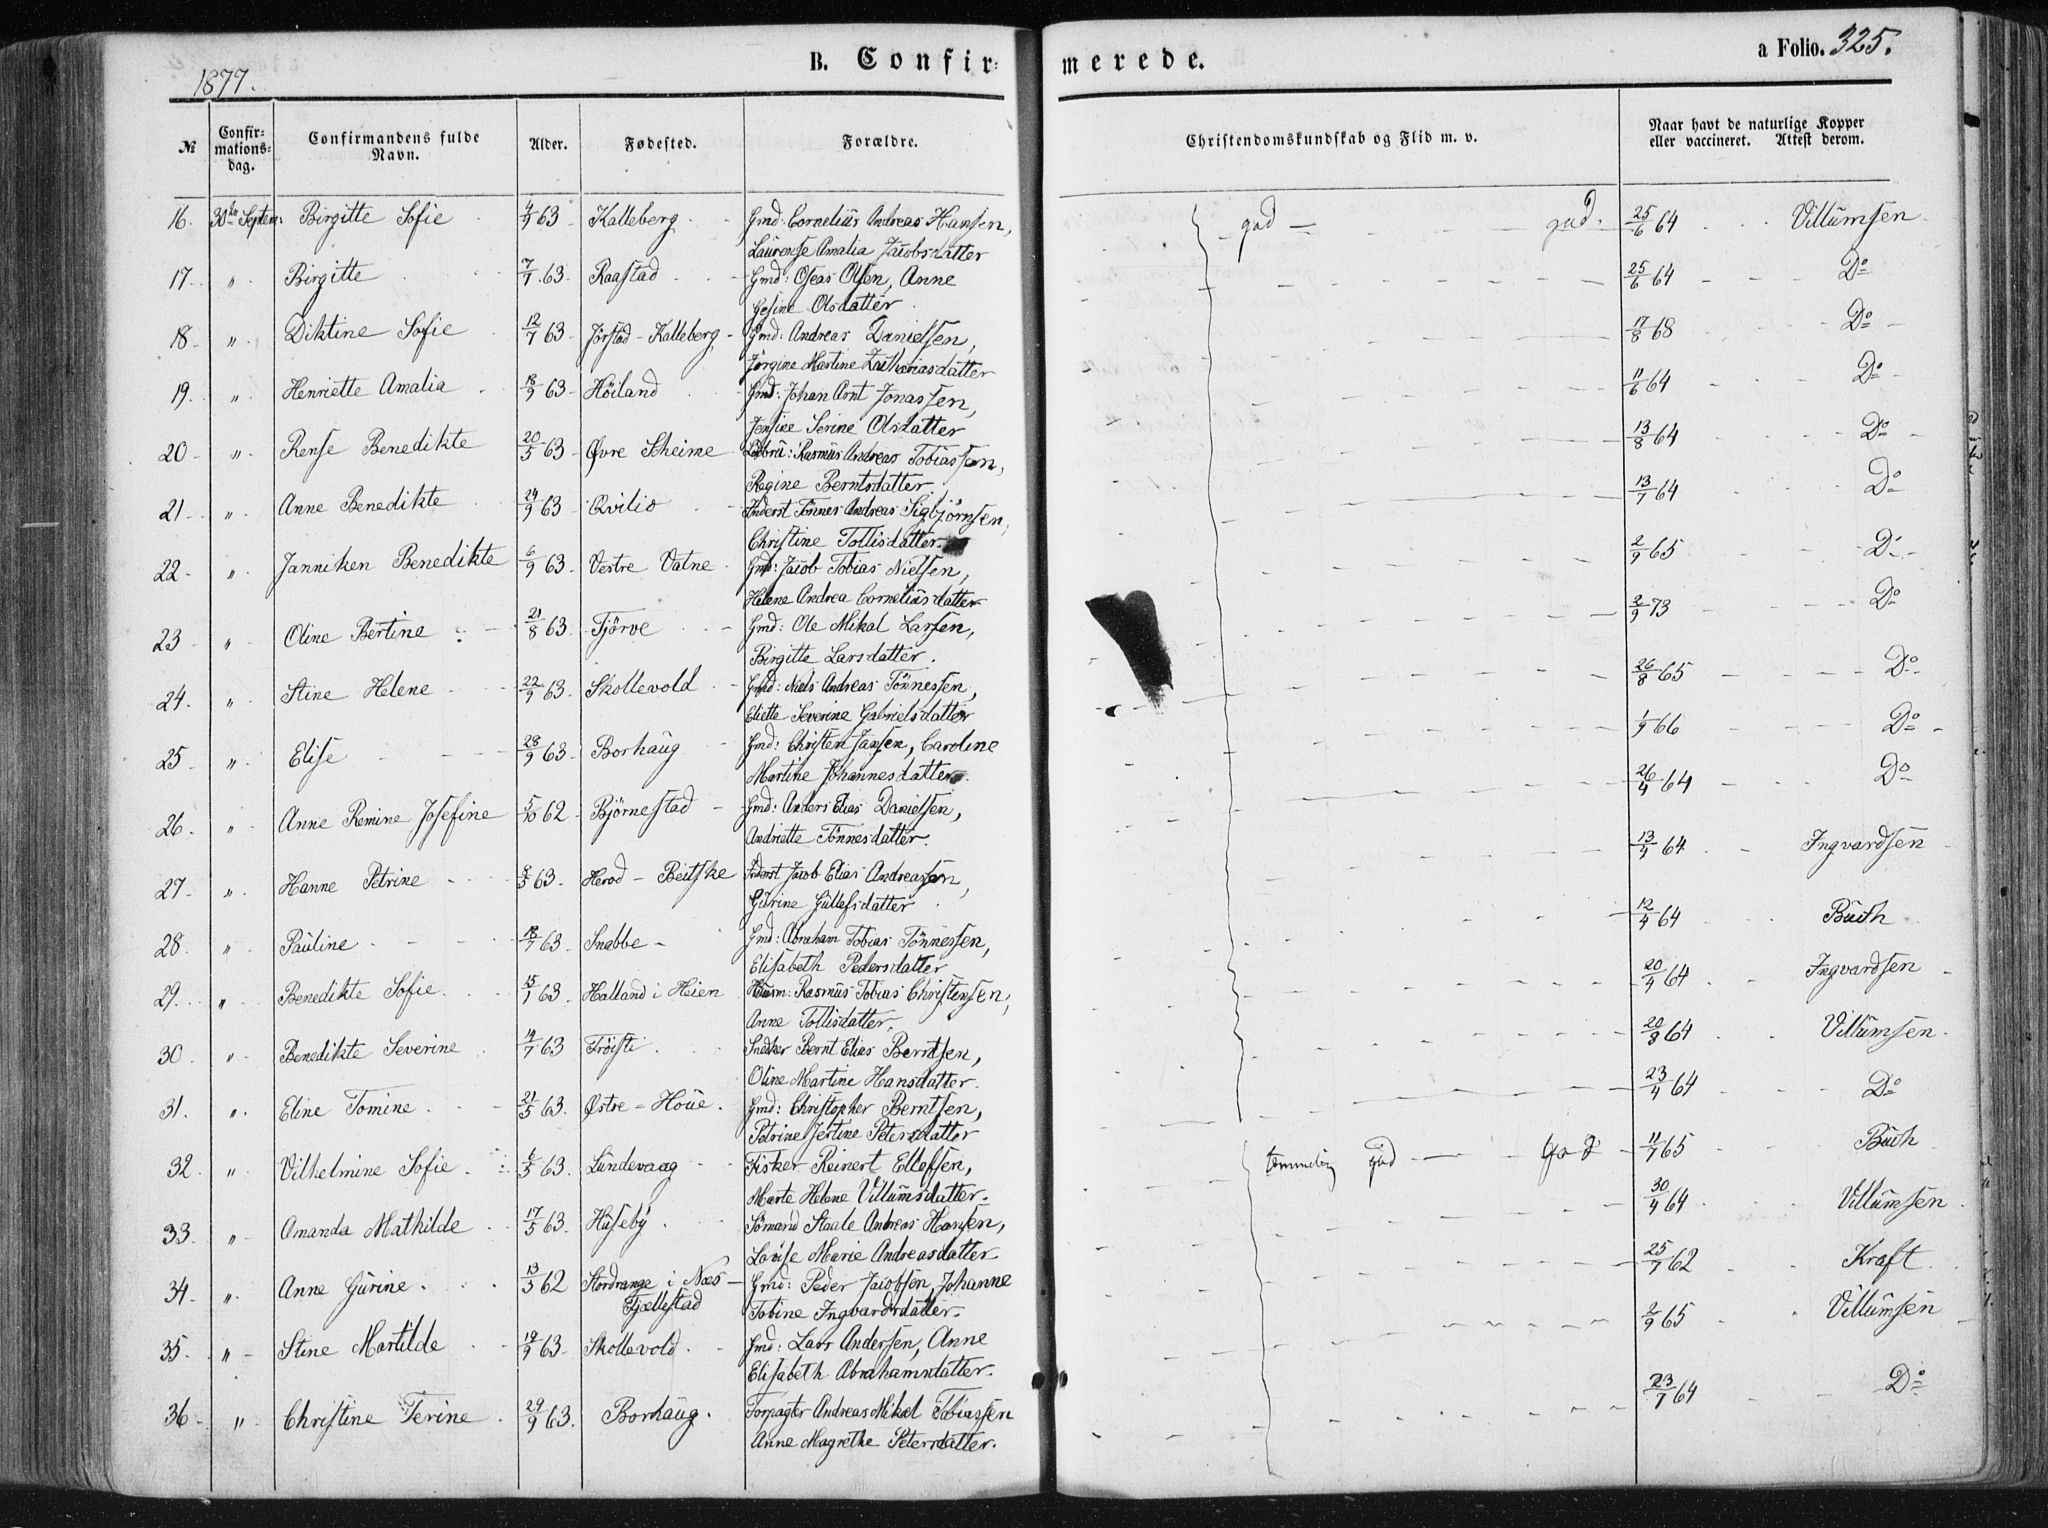 1877.
B. Confirmerede.
a Folio. 325.
№ Confirmations-dag. Confirmandens fulde Navn. Alder. Fødested. Forældre. Christendomskundskab og Flid m. v. Naar havt de naturlige Kopper eller vaccineret. Attest derom.
16. 30te Septem: Birgitte Sofie 4/9 63 Kalleberg. Gmd: Cornelius Andreas Hansen, god — god. 25/6 64 Villumsen
Laurense Amalia Jacobsdatter
17 " Birgitte 7/7 63 Raastad Gmd: Oseas Olsen, Anne 25/6 64 Do
Gesine Olsdatter
18 " Diktine Sofie 12/7 63 Jørstad - Kalleberg Gmd: Andreas Danielsen, 17/8 68 Do
Jørgine Martine Zakariasdatter
19. " Henriette Amalia 18/9 63 Höiland Gmd: Johan Arnt Jonassen, 11/6 64 Do
Jensine Serine Olsdatter
20 " Rense Benedikte 20/5 63 Øvre Skeime Rasmus Andreas Tobiassen, 13/8 64 Do
Regine Berntsdatter
21 " Anne Benedikte 24/9 63 Qvilio Inderst Tönnes Andreas Sigbjørnsen, 13/7 64 Do
Christine Tollisdatter.
22 " Janniken Benedikte 6/9 63 Vestre Vatne Gmd: Jacob Tobias Nielsen, 2/9 65 Do
Helene Andrea Corneliusdatter
23 " Oline Bertine 21/8 63 Tjörve Gmd: Ole Mikal Larsen, 2/9 73 Do
Birgitte Larsdatter.
24 " Stine Helene 22/9 63 Skollevold Gmd: Niels Andreas Tönnessen, 26/8 65 Do
Eliette Severine Gabrielsdatter
25 " Elise 28/9 63 Borhaug Gmd: Christen Jansen, Caroline 1/9 66 Do
Martine Johannesdatter.
26 " Anne Remine Josefine 5/10 62 Bjørnestad Gmd: Anders Elias Danielsen, 26/4 64 Do
Andriette Tönnesdatter.
27 " Hanne Petrine 63. Herod - Beitske Inderst Jacob Elias Andreassen, 13/4 64 Ingvardsen
Gurine Gullefsdatter
28 " Pauline 18/7 63 Snabbe Gmd: Abraham Tobias Tönnessen, 12/4 64 Buch
Elisabeth Pedersdatter
29. " Benedikte Sofie 15/1 63 Halland i Heien Husm: Rasmus Tobias Christensen, 20/4 64 Ingvardsen
Anne Tollisdatter.
30 " Benedikte Severine 63 Tröisti Snedker Bernt Elias Berntsen, 20/8 64 Villumsen
Oline Martine Hansdatter.
31. " Eline Tomine 21/5 63. Østre - Houe. Gmd: Christopher Berntsen, 23/4 64 Do
Petrine Jertine Petersdatter
32. " Vilhelmine Sofie 6/5 63. Lundevaag Fisker Reinert Ellefsen, temmelig god — God 11/7 65 Buch
Marte Helene Villumsdatter.
33. " Amanda Mathilde 17/5 63. Huseby Sömand Staale Andreas Hansen, 30/4 64 Villumsen
Lovise Marie Andreasdatter
34 " Anne Gurine 13/3 62 Stordrange i Næs - Gmd: Peder Jacobsen, Johanne 25/7 62 Kraft
Fjellestad Tobine Ingvardsdatter.
35. " Stine Martilde 19/9 63 Skollevold. Gmd: Lars Andersen, Anne 2/9 65 Villumsen
Elisabeth Abrahamsdatter.
36 " Christine Terine 29/9 63. Borhaug. Forpagter Andreas Mikal Tobiassen 23/7 64 Do
Anne Magrethe Petersdatter.